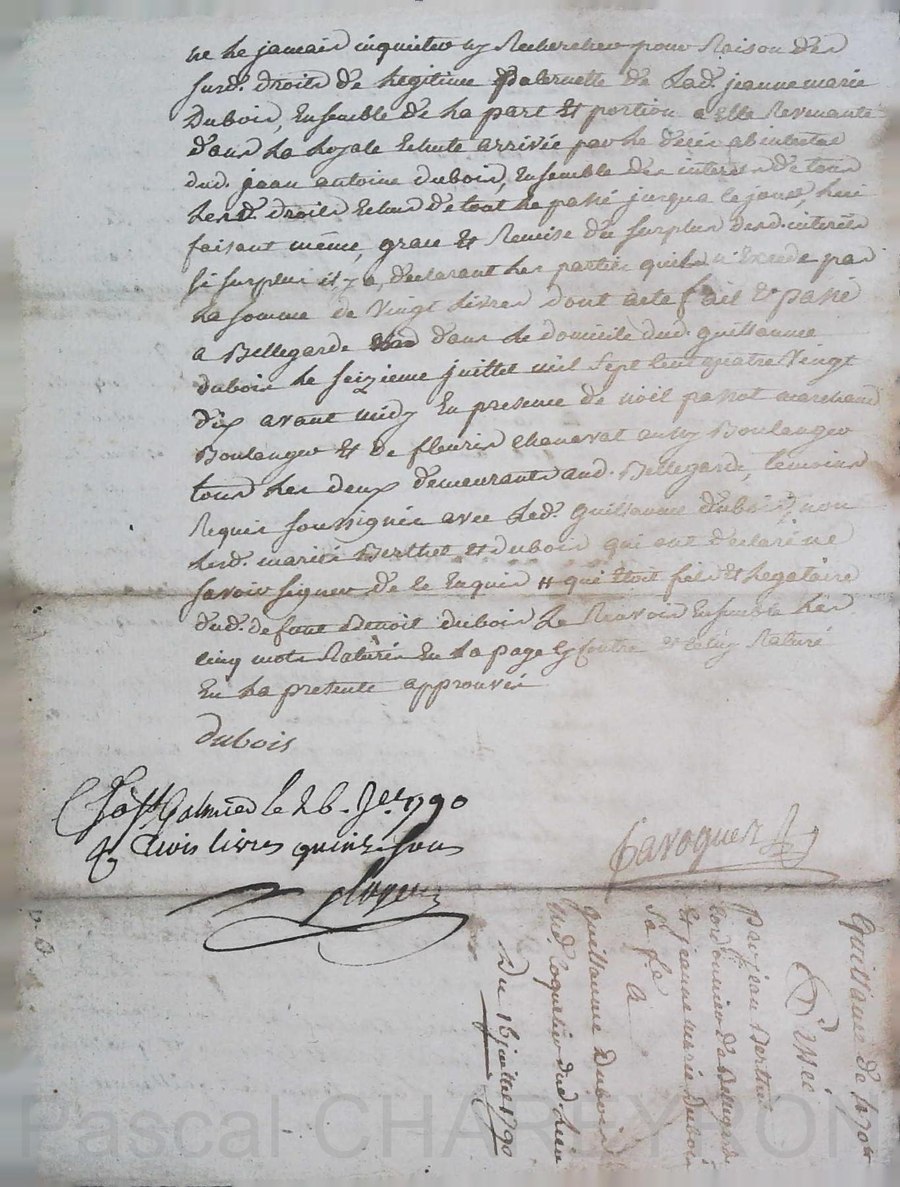 ne le jamais inquieter ny Rechercher pour Raison des
susd. droits de legitime paternelle de lad. jeanne marie
Dubois, Ensemble de la part et portion a Elle Revenante
dans la loyale Echute arrivée par le décès abintestat
dud. jean antoine dubois, Ensemble des interets de tous
lesd. droits Echus de tout le passé jusqua ce jour, lui
faisant même, grace et Remise du surplus desd. interêts
si surplus il y a, declarant les parties quil n'Excede pas
la somme de Vingt Livres dont acte fait et passé
a Bellegarde dans le domicile dud. guillaume
dubois le seizieme juillet mil sept cent quatre Vingt
dix avant midy En presence de noël passot marchand
Boulanger et de fleuris chanavat aussy Boulanger
tous les deux demeurants aud. Bellegarde, temoins
Requis soussignés avec led. Guillaume dubois, non
lesd. mariés Berthet et dubois qui ont declaré ne
savoir signer de ce Enquis # qui etoit fils et legataire
dud. defunt Benoit dubois Le Renvoi Ensemble les
cinq mots Raturés En la page et celuy Raturé
En la presente approuvés
dubois
Galmier le 26. 1790
trois livres quinze sous
Quittance de 470#
passée
par jean Berthet
cordonnier de Bellegarde
et jeanne marie dubois
sa fe. a
guillaume Dubois
dud. lieu
Du 16 juillet 1790
Pascal CHAREYRON